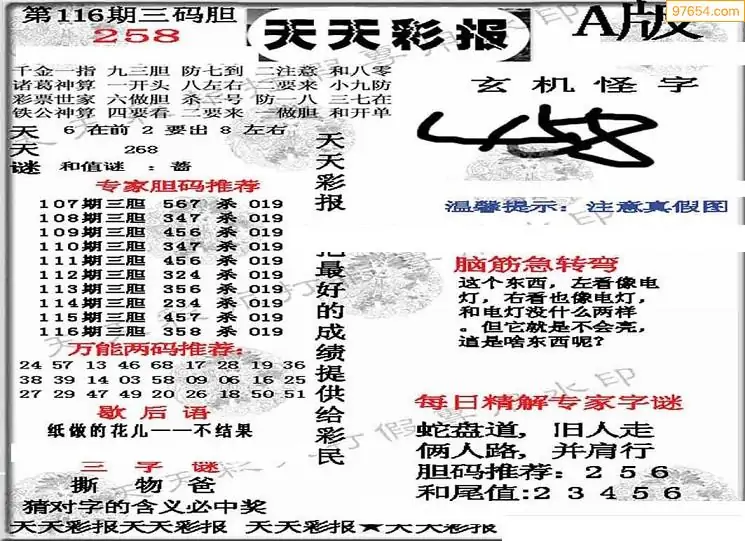 第116期三码胆
258
天天彩报
A版
97654.com
千金一指 九三胆 防七到 二注意 和八零
诸葛神算 一开头 八左右 二要来 小九防
彩票世家 六做胆 杀二号 防一八 三七在
铁公神算 四要看 二要来 一做胆 和开单
天 6 在前 2 要出 8 左右
天 268
谜 和值谜 : 蔷
专家胆码推荐
107期三胆 567 杀 019
108期三胆 347 杀 019
109期三胆 456 杀 019
110期三胆 347 杀 019
111期三胆 456 杀 019
112期三胆 324 杀 019
113期三胆 356 杀 019
114期三胆 234 杀 019
115期三胆 457 杀 019
116期三胆 358 杀 019
万能两码推荐:
24 57 13 46 68 17 28 19 36
38 39 14 03 58 09 06 16 25
27 29 47 49 20 26 18 50 51
歇后语
纸做的花儿——不结果
三字谜
撕 物 爸
猜对字的含义必中奖
天天彩报
把最好的成绩提供给彩民
玄机怪字
温馨提示: 注意真假图
脑筋急转弯
这个东西,左看像电
灯,右看也像电灯,
和电灯没什么两样
。但它就是不会亮,
這是啥东西呢?
每日精解专家字谜
蛇盘道, 旧人走
俩人路, 并肩行
胆码推荐: 2 5 6
和尾值:2 3 4 5 6
天天彩报天天彩报 天天彩报★天天彩报